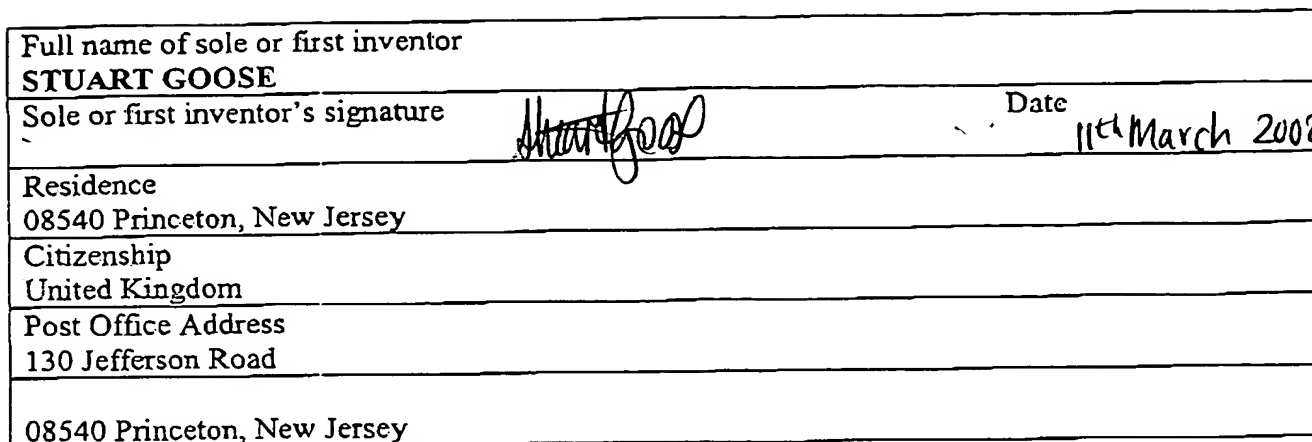 Full name of sole or first inventor
STUART GOOSE
Sole or first inventor's signature Stuart Goose Date 11th March 2002
Residence
08540 Princeton, New Jersey
Citizenship
United Kingdom
Post Office Address
130 Jefferson Road
08540 Princeton, New Jersey